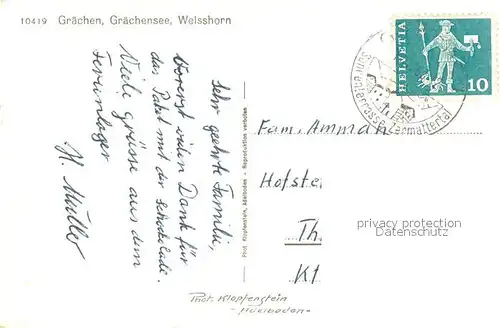 10419 Grächen, Grächensee, Weisshorn
Sehr geehrte Familie,
Vorerst vielen Dank für
das Paket mit der Schokolade.
Viele Grüsse aus dem
Ferienlager
H. Müller
Phot. Klopfenstein, Adelboden - Reproduktion verboten
HELVETIA
10
Sonnenterrasse Zermattertal
Fam. Ammann
Hofste
Th.
Kt
privacy protection
Phot. Klopfenstein
- Adelboden -